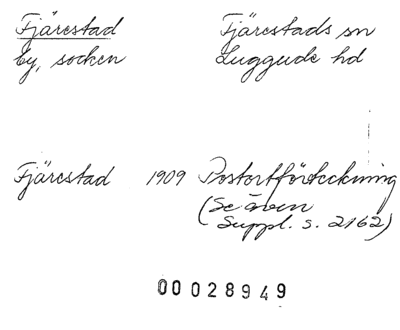 Fjärestad Fjärestads sn
by, socken Luggude hd
Fjärestad 1909 Postortförteckning
(Se även
Suppl. s. 2162)
00028949